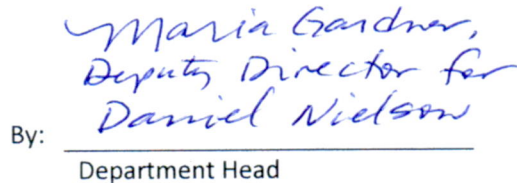 Maria Gardner,
Deputy Director for
Daniel Nielson
By:
Department Head